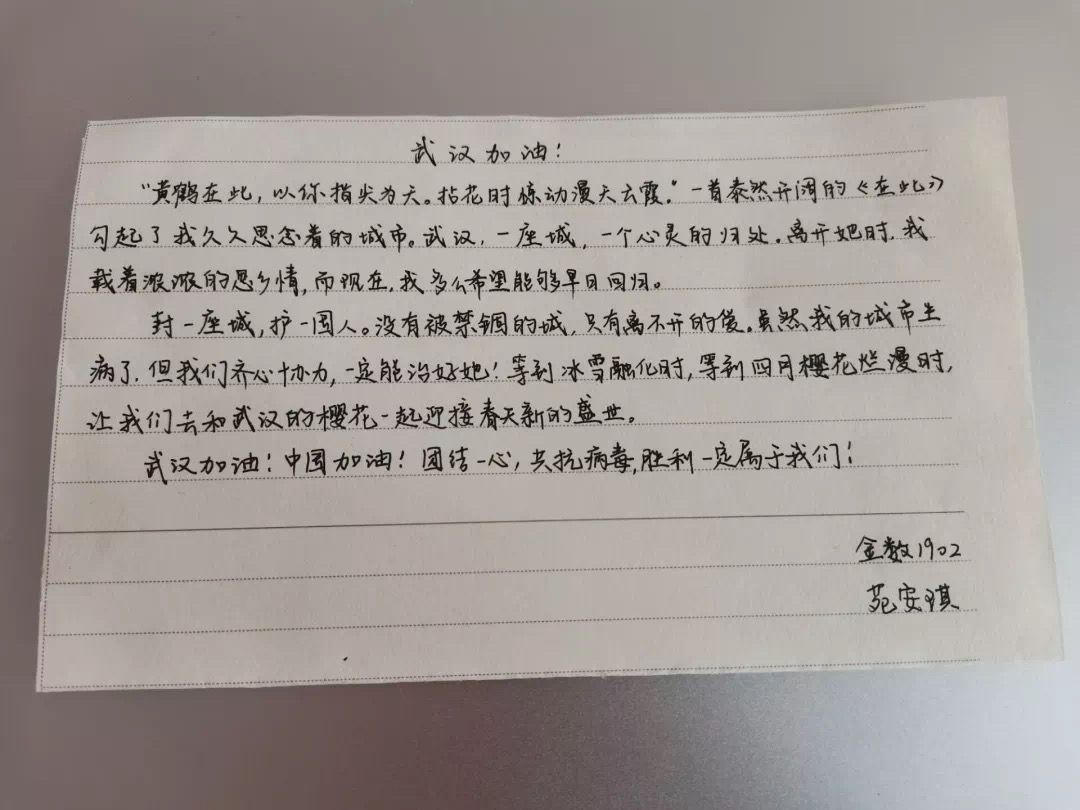 武汉加油！
“黄鹤在此，以你指尖为天。拈花时惊动漫天云霞。”一首泰然开阔的《在此》
勾起了我久久思念着的城市。武汉，一座城，一个心灵的归处。离开她时，我
载着浓浓的思乡情，而现在，我多么希望能够早日回归。
封一座城，护一国人。没有被禁锢的城，只有离不开的爱。虽然我的城市生
病了，但我们齐心协力，一定能治好她！等到冰雪融化时，等到四月樱花烂漫时，
让我们去和武汉的樱花一起迎接春天新的盛世。
武汉加油！中国加油！团结一心，共抗病毒，胜利一定属于我们！
金数1902
苑安琪